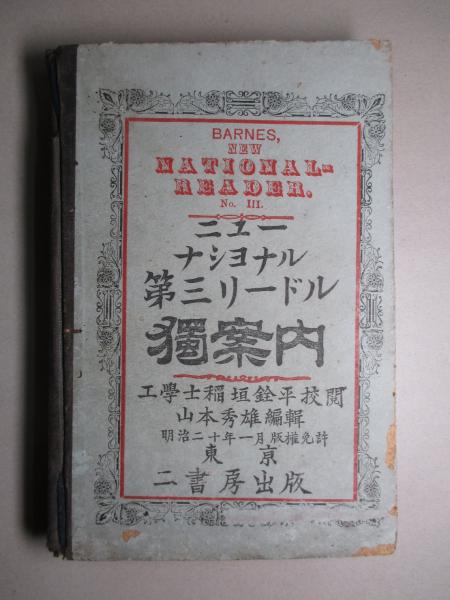 BARNES,
NEW
NATIONAL-
READER.
No. III.
ニユー
ナショナル
第三リードル
獨案内
工學士稲垣銓平挍閲
山本秀雄編輯
明治二十年一月版權免許
東京
二書房出版